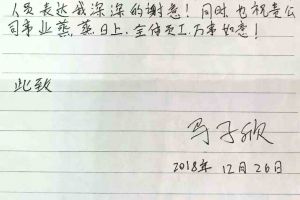 人员表达我深深的谢意！同时，也祝贵公
司事业蒸蒸日上，全体员工，万事如意！
此致
马子欣
2018年 12月26日